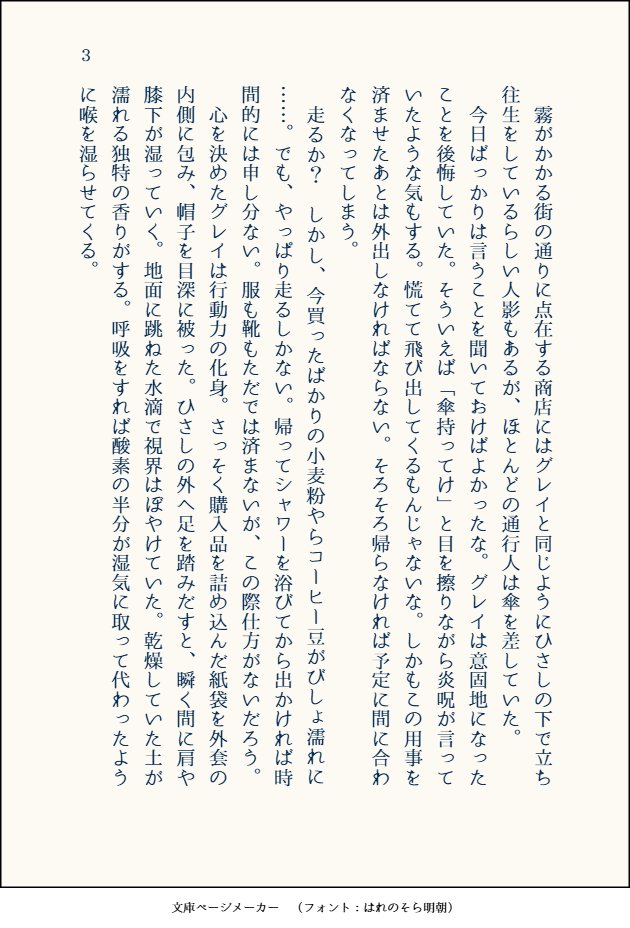 3
霧がかかる街の通りに点在する商店にはグレイと同じようにひさしの下で立ち
往生をしているらしい人影もあるが、ほとんどの通行人は傘を差していた。
今日ばっかりは言うことを聞いておけばよかったな。グレイは意固地になった
ことを後悔していた。そういえば「傘持ってけ」と目を擦りながら炎呪が言って
いたような気もする。慌てて飛び出してくるもんじゃないな。しかもこの用事を
済ませたあとは外出しなければならない。そろそろ帰らなければ予定に間に合わ
なくなってしまう。
走るか？　しかし、今買ったばかりの小麦粉やらコーヒー豆がびしょ濡れに
……。でも、やっぱり走るしかない。帰ってシャワーを浴びてから出かければ時
間的には申し分ない。服も靴もただでは済まないが、この際仕方がないだろう。
心を決めたグレイは行動力の化身。さっそく購入品を詰め込んだ紙袋を外套の
内側に包み、帽子を目深に被った。ひさしの外へ足を踏みだすと、瞬く間に肩や
膝下が湿っていく。地面に跳ねた水滴で視界はぼやけていた。乾燥していた土が
濡れる独特の香りがする。呼吸をすれば酸素の半分が湿気に取って代わったよう
に喉を湿らせてくる。
文庫ページメーカー　（フォント：はれのそら明朝）